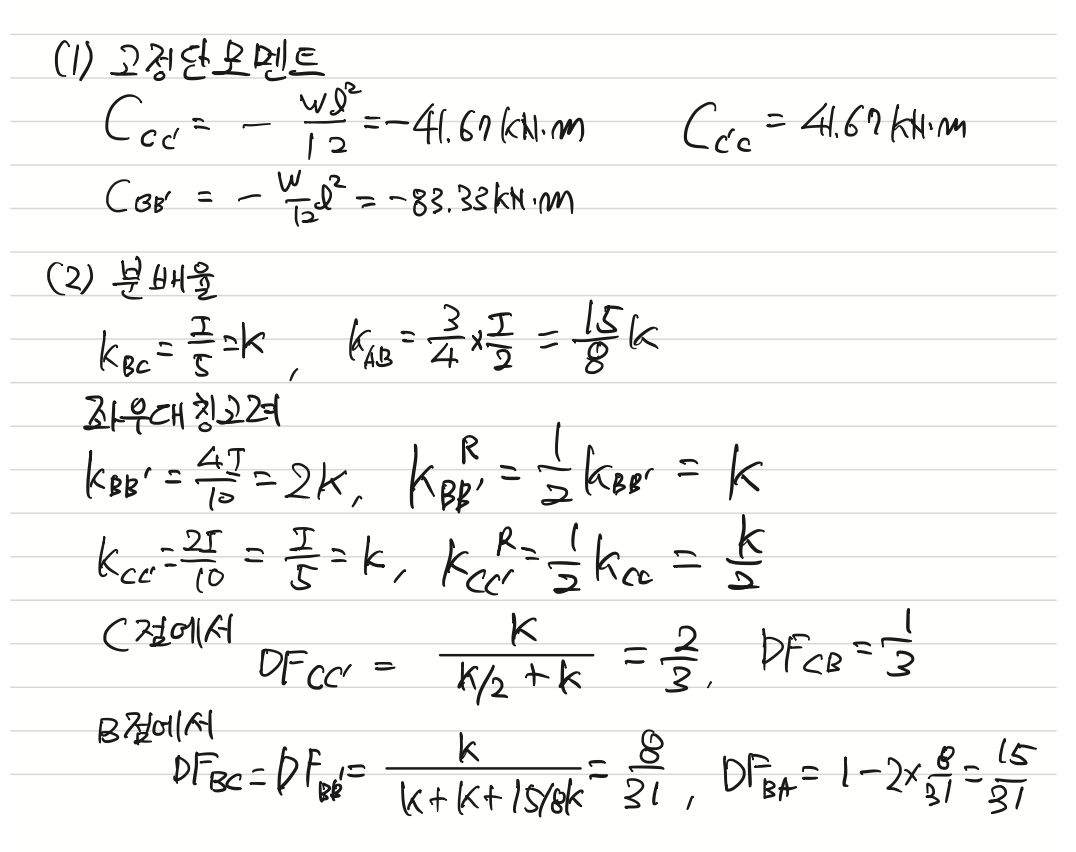 (1) 고정단모멘트
C_CC' = - wl²/12 = -41.67 kN·m C_C'C = 41.67 kN·m
C_BB' = - w/12 l² = -83.33 kN·m
(2) 분배율
k_BC = I/5 = k, k_AB = 3/4 × I/2 = 15/8 k
좌우대칭고려
k_BB' = 4I/10 = 2k, k_BB'^R = 1/2 k_BB' = k
k_CC' = 2I/10 = I/5 = k, k_CC'^R = 1/2 k_CC = k/2
C점에서 DF_CC' = k/(k/2 + k) = 2/3, DF_CB = 1/3
B점에서
DF_BC = DF_BB' = k/(k + k + 15/8k) = 8/31, DF_BA = 1 - 2 × 8/31 = 15/31